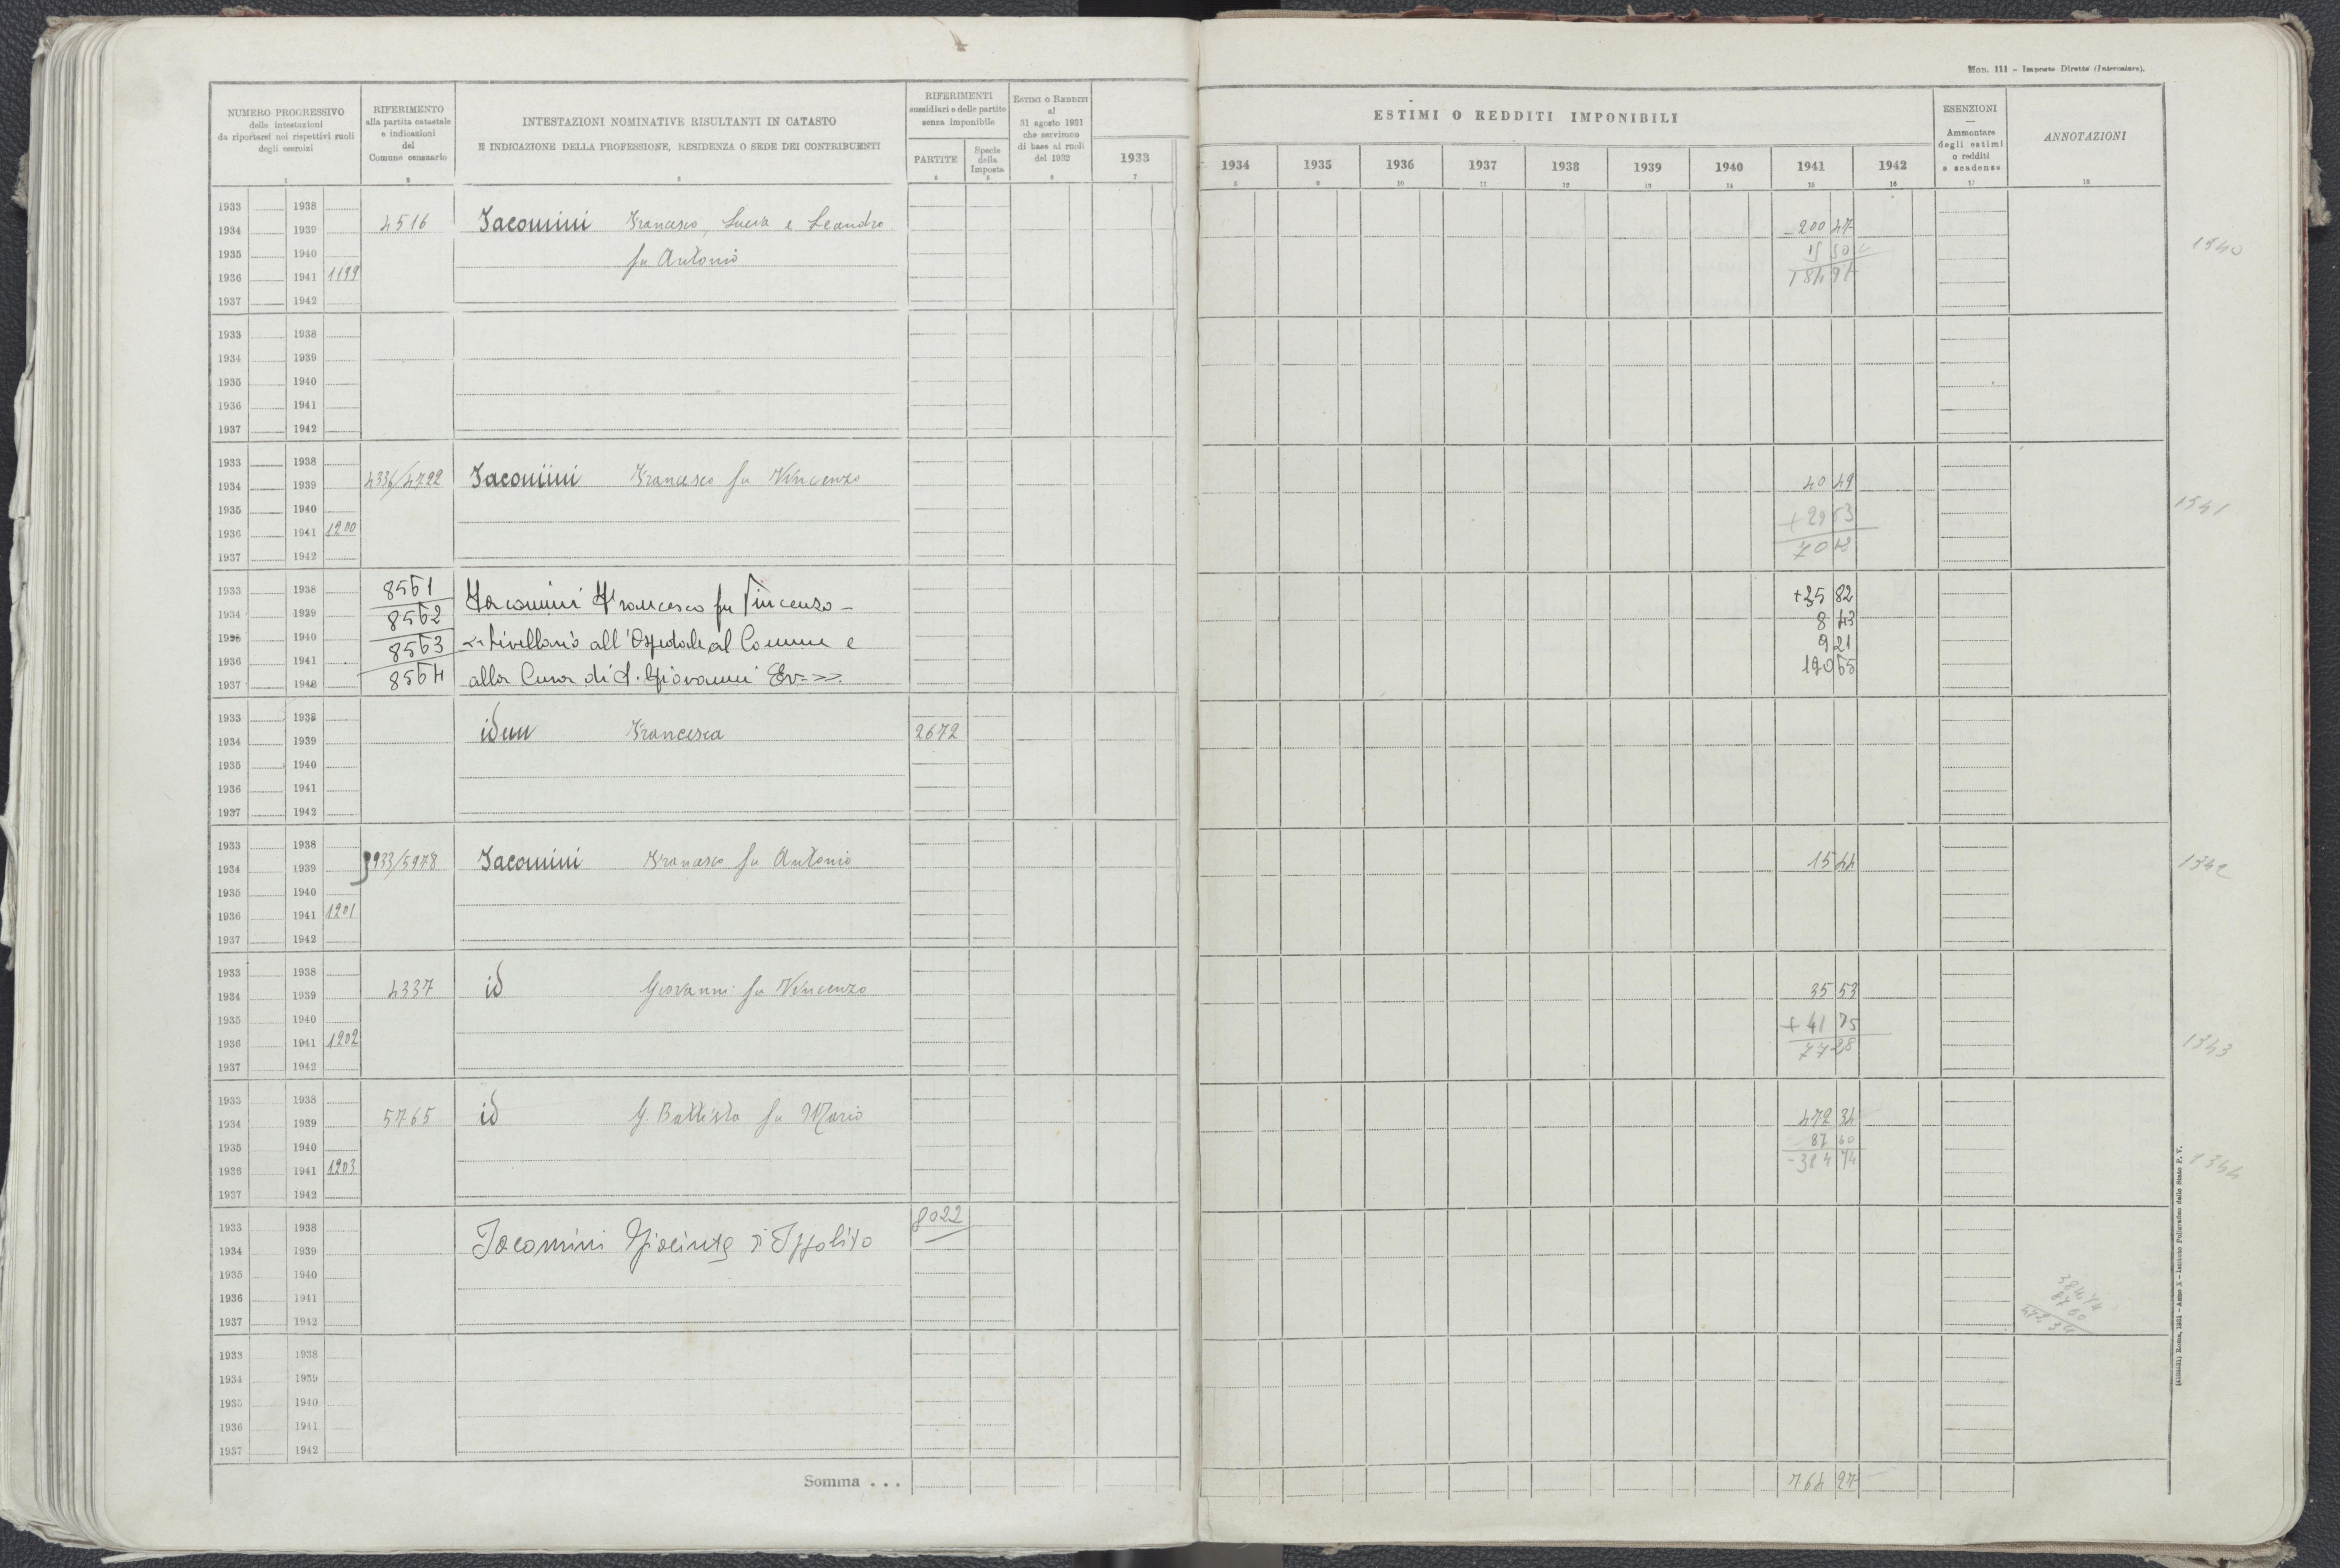 Mod. 111 - Imposte Dirette (Intercalare).
NUMERO PROGRESSIVO
delle intestazioni
da riportarsi nei rispettivi ruoli
degli esercizi
1
RIFERIMENTO
alla partita catastale
e indicazioni
del
Comune censuario
2
INTESTAZIONI NOMINATIVE RISULTANTI IN CATASTO
E INDICAZIONE DELLA PROFESSIONE, RESIDENZA O SEDE DEI CONTRIBUENTI
3
RIFERIMENTI
sussidiari e delle partite
senza imponibile
PARTITE
4
Specie
della
Imposta
5
ESTIMI O REDDITI
al
31 agosto 1931
che servirono
di base ai ruoli
del 1932
6
1933
7
ESTIMI O REDDITI IMPONIBILI
1934 1935 1936 1937 1938 1939 1940 1941 1942
8 9 10 11 12 13 14 15 16
ESENZIONI
—
Ammontare
degli estimi
o redditi
e scadenze
17
ANNOTAZIONI
18
1933 1938
1934 1939 4516 Iacomini Francesco, Lucia e Leandro 200 47
1935 1940 fu Antonio 15 50
1936 1941 1199 184 97
1937 1942
1340
1933 1938
1934 1939
1935 1940
1936 1941
1937 1942
1933 1938
1934 1939 4336/4722 Iacomini Francesco fu Vincenzo 40 49
1935 1940 + 29 63
1936 1941 1200 70 12
1937 1942
1341
1933 1938 8561 Iacomini Francesco fu Vincenzo - +25 82
1934 1939 8562 8 43
1935 1940 8563 livellario all'Ospedale al Comune e 9 21
1936 1941 8564 alla Cura di S. Giovanni Ev= 120 65
1937 1942
1933 1938
1934 1939 idem Francesca 2672
1935 1940
1936 1941
1937 1942
1933 1938
1934 1939 3933/5978 Iacomini Francesco fu Antonio 15 44
1935 1940
1936 1941 1201
1937 1942
1342
1933 1938
1934 1939 4337 id Giovanni fu Vincenzo 35 53
1935 1940 + 41 75
1936 1941 1202 77 28
1937 1942
1343
1933 1938
1934 1939 5765 id G. Battista fu Mario 472 34
1935 1940 87 60
1936 1941 1203 - 384 74
1937 1942
1344
1933 1938 8022
1934 1939 Iacomini Giacinta di Ippolito
1935 1940
1936 1941
1937 1942
384 74
87 60
472 34
1933 1938
1934 1939
1935 1940
1936 1941
1937 1942
Somma . . . 764 27
Roma, 1931 - Anno X - Istituto Poligrafico dello Stato P. V.